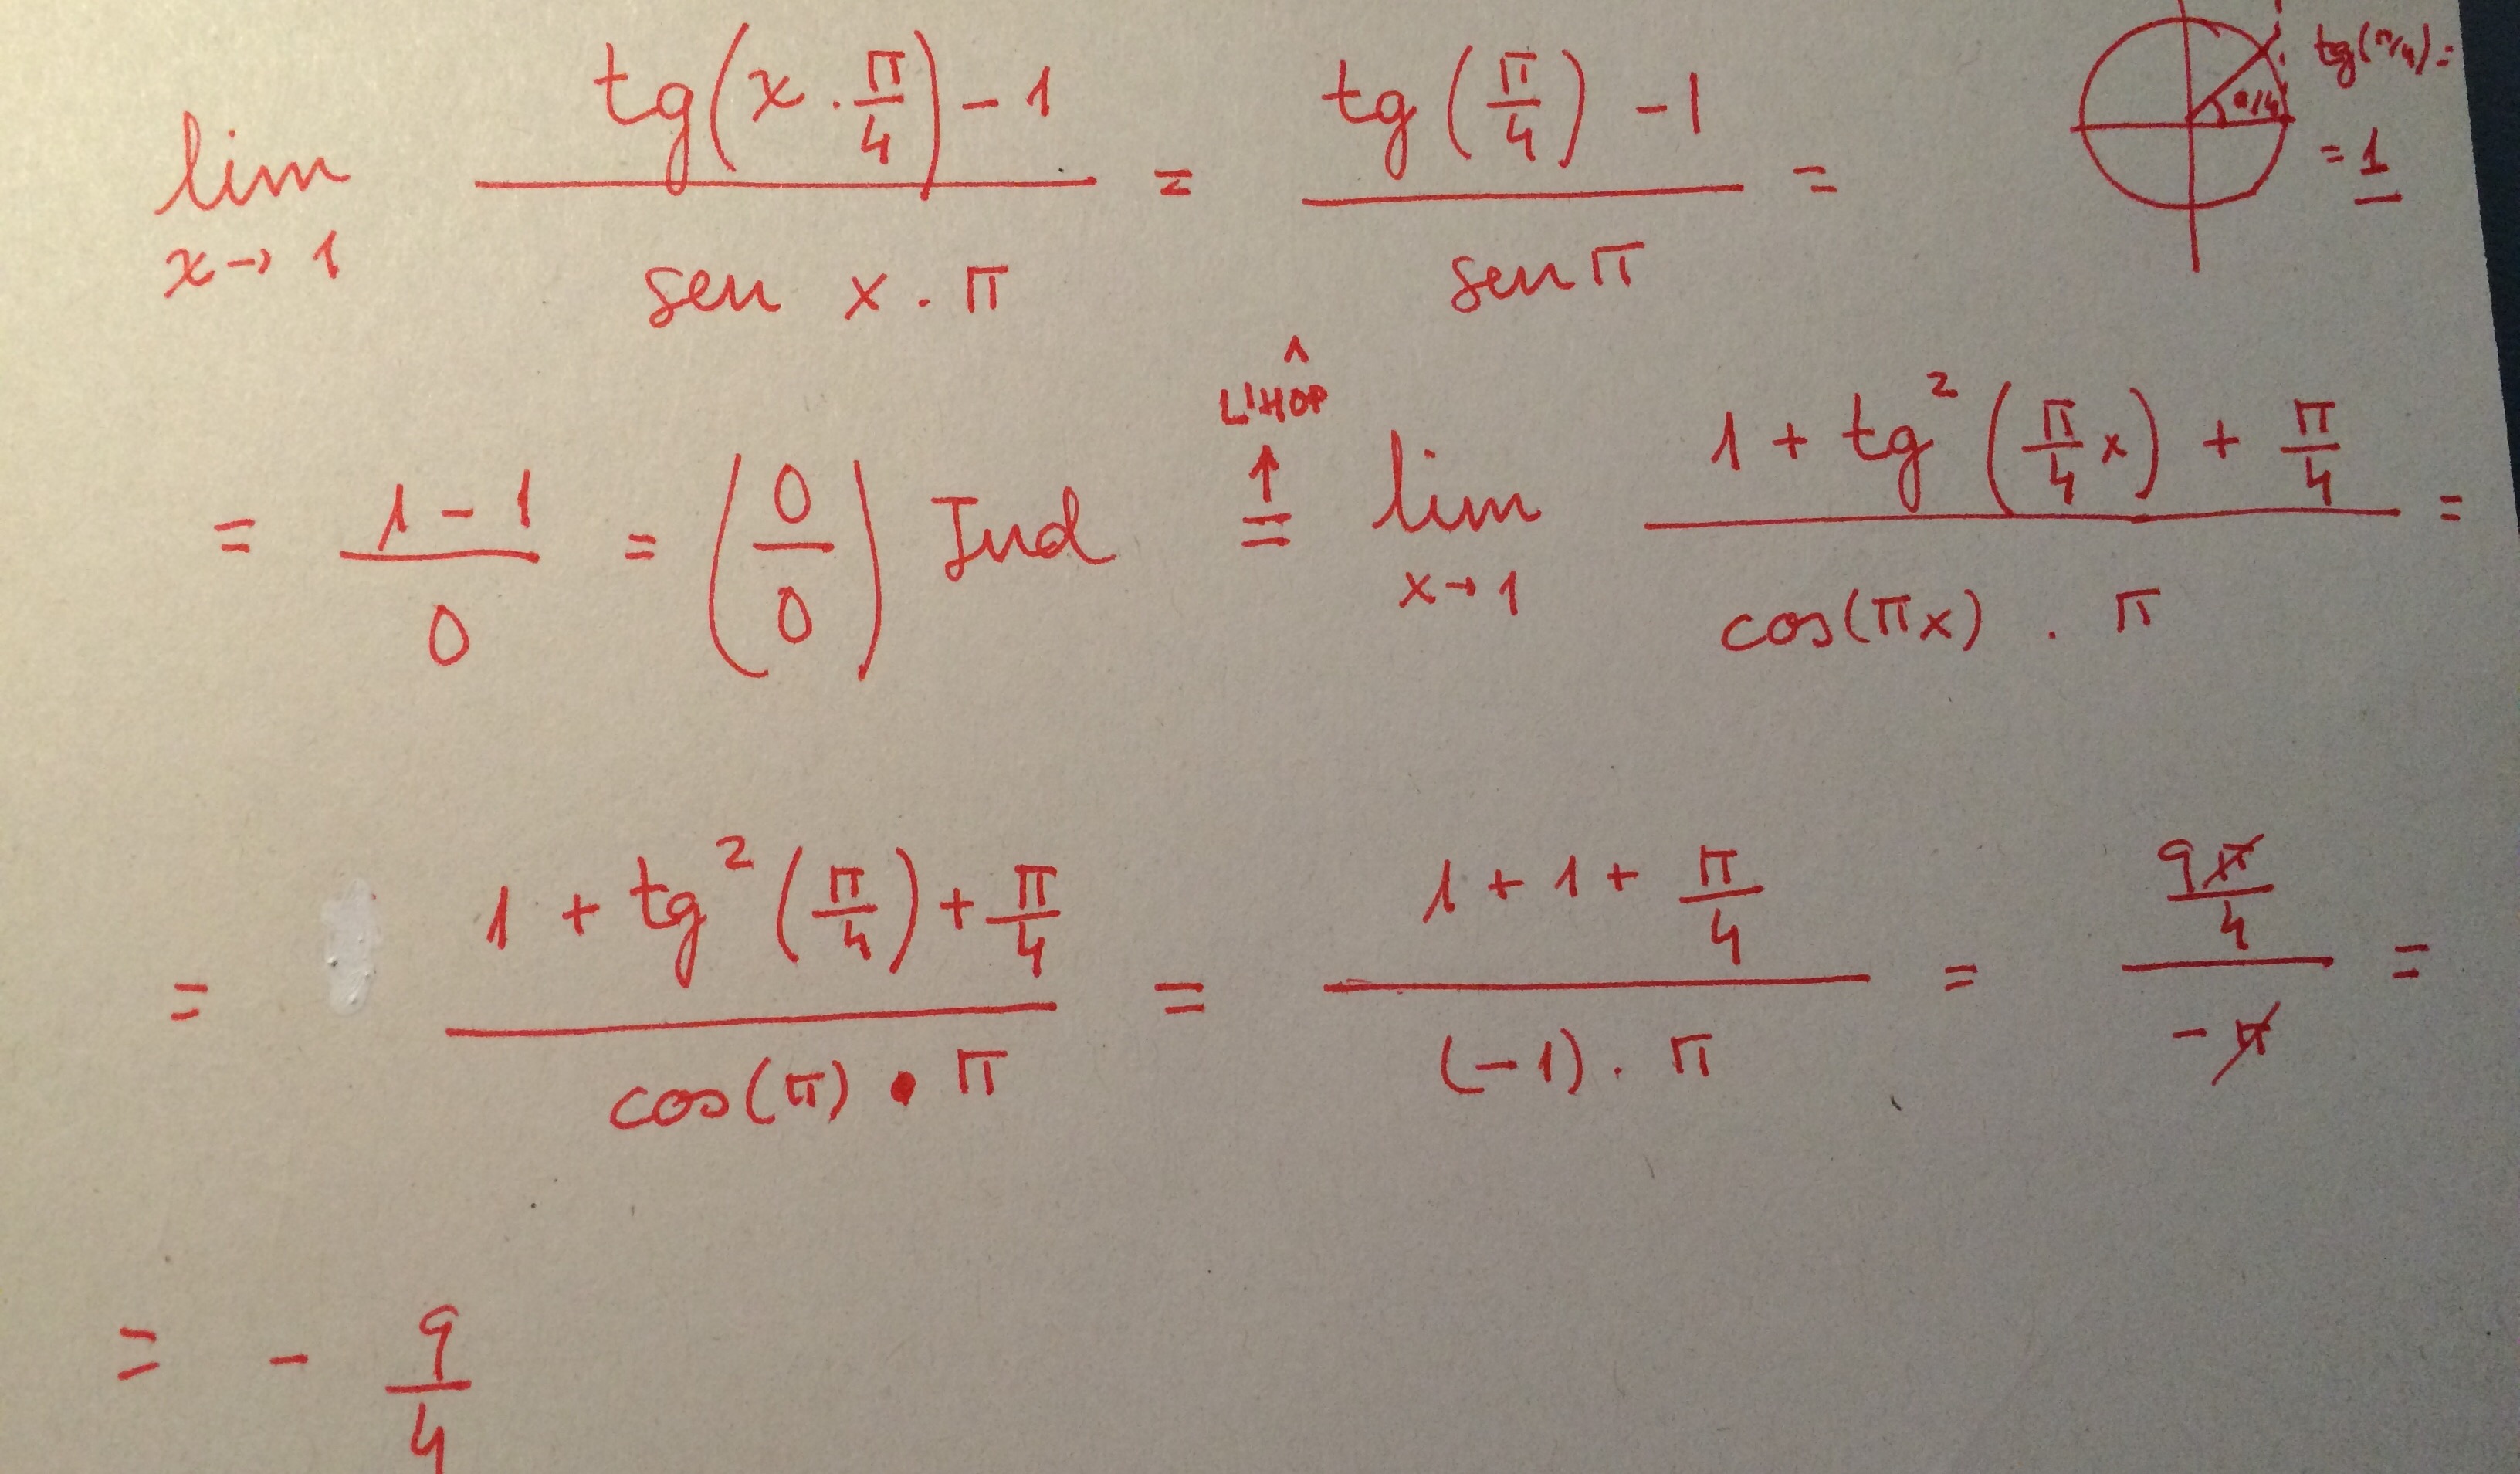 lim x→1 (tg(x · π/4) − 1) / (sen x · π) = (tg(π/4) − 1) / (sen π) =
tg(π/4) =
π/4
= 1
= (1 − 1)/0 = (0/0) Ind = ↑ L'HÔP lim x→1 (1 + tg²(π/4 x) + π/4) / (cos(πx) · π) =
= (1 + tg²(π/4) + π/4) / (cos(π) · π) = (1 + 1 + π/4) / ((−1) · π) = (9π/4) / (−π) =
= − 9/4